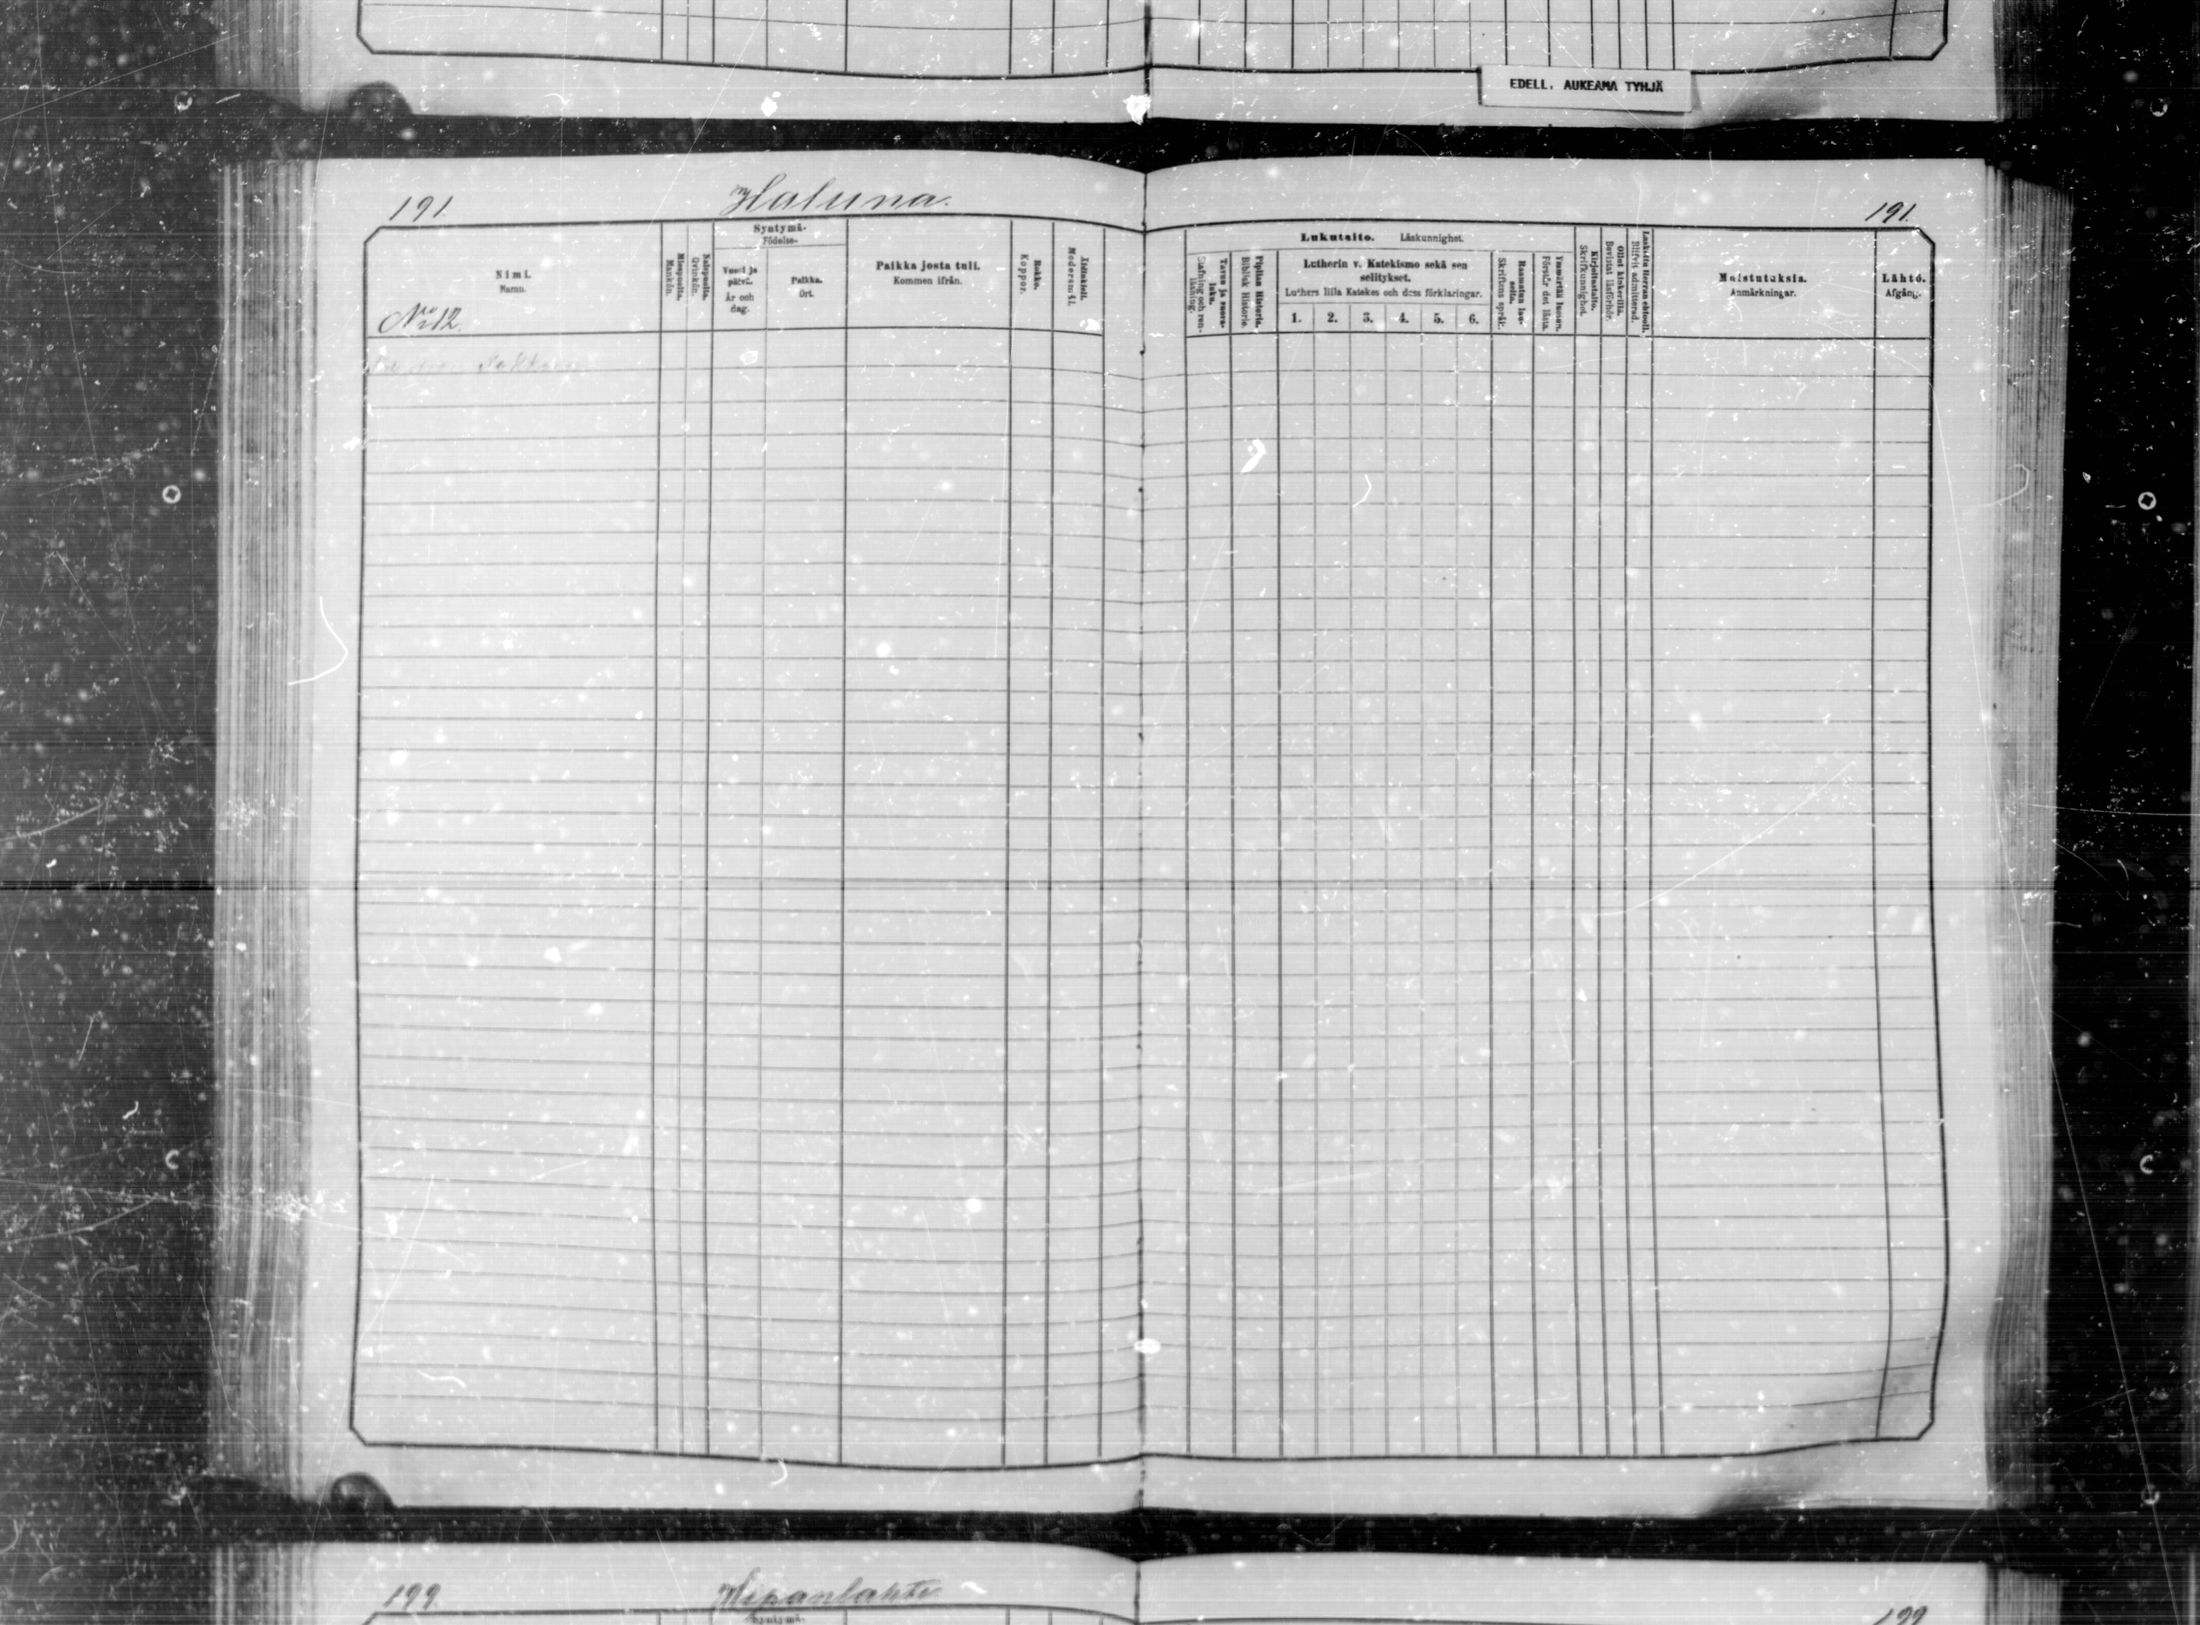 EDELL. AUKEAMA TYHJÄ
191 Haluna. 191.
Nimi.
Namn.
No 12.
Miespuolia.
Mankön.
Naispuolia.
Qvinkön.
Syntymä-
Födelse-
Vuosi ja
päivä.
År och
dag.
Paikka.
Ort.
Paikka josta tuli.
Kommen ifrån.
Rokko.
Koppor.
Äidinkieli.
Modersmål.
Lukutaito. Läskunnighet.
Tavuu ja suora-
luku.
Stafning och ren-
läsning.
Piplian Historia.
Biblisk Historie.
Lutherin v. Katekismo sekä sen
selitykset.
Luthers lilla Katekes och dess förklaringar.
1. 2. 3. 4. 5. 6.
Raamatun lau-
seita.
Skriftens språk.
Ymmärtää lukun.
Förstår det lästa.
Kirjoitustaito.
Skrifkunnighet.
Ollut kinkerillä.
Bevistat läsförhör.
Laskettu Herran ehtooll.
Blifven admitterad.
Muistutuksia.
Anmärkningar.
Lähtö.
Afgång.
199. 199
Syntymä-